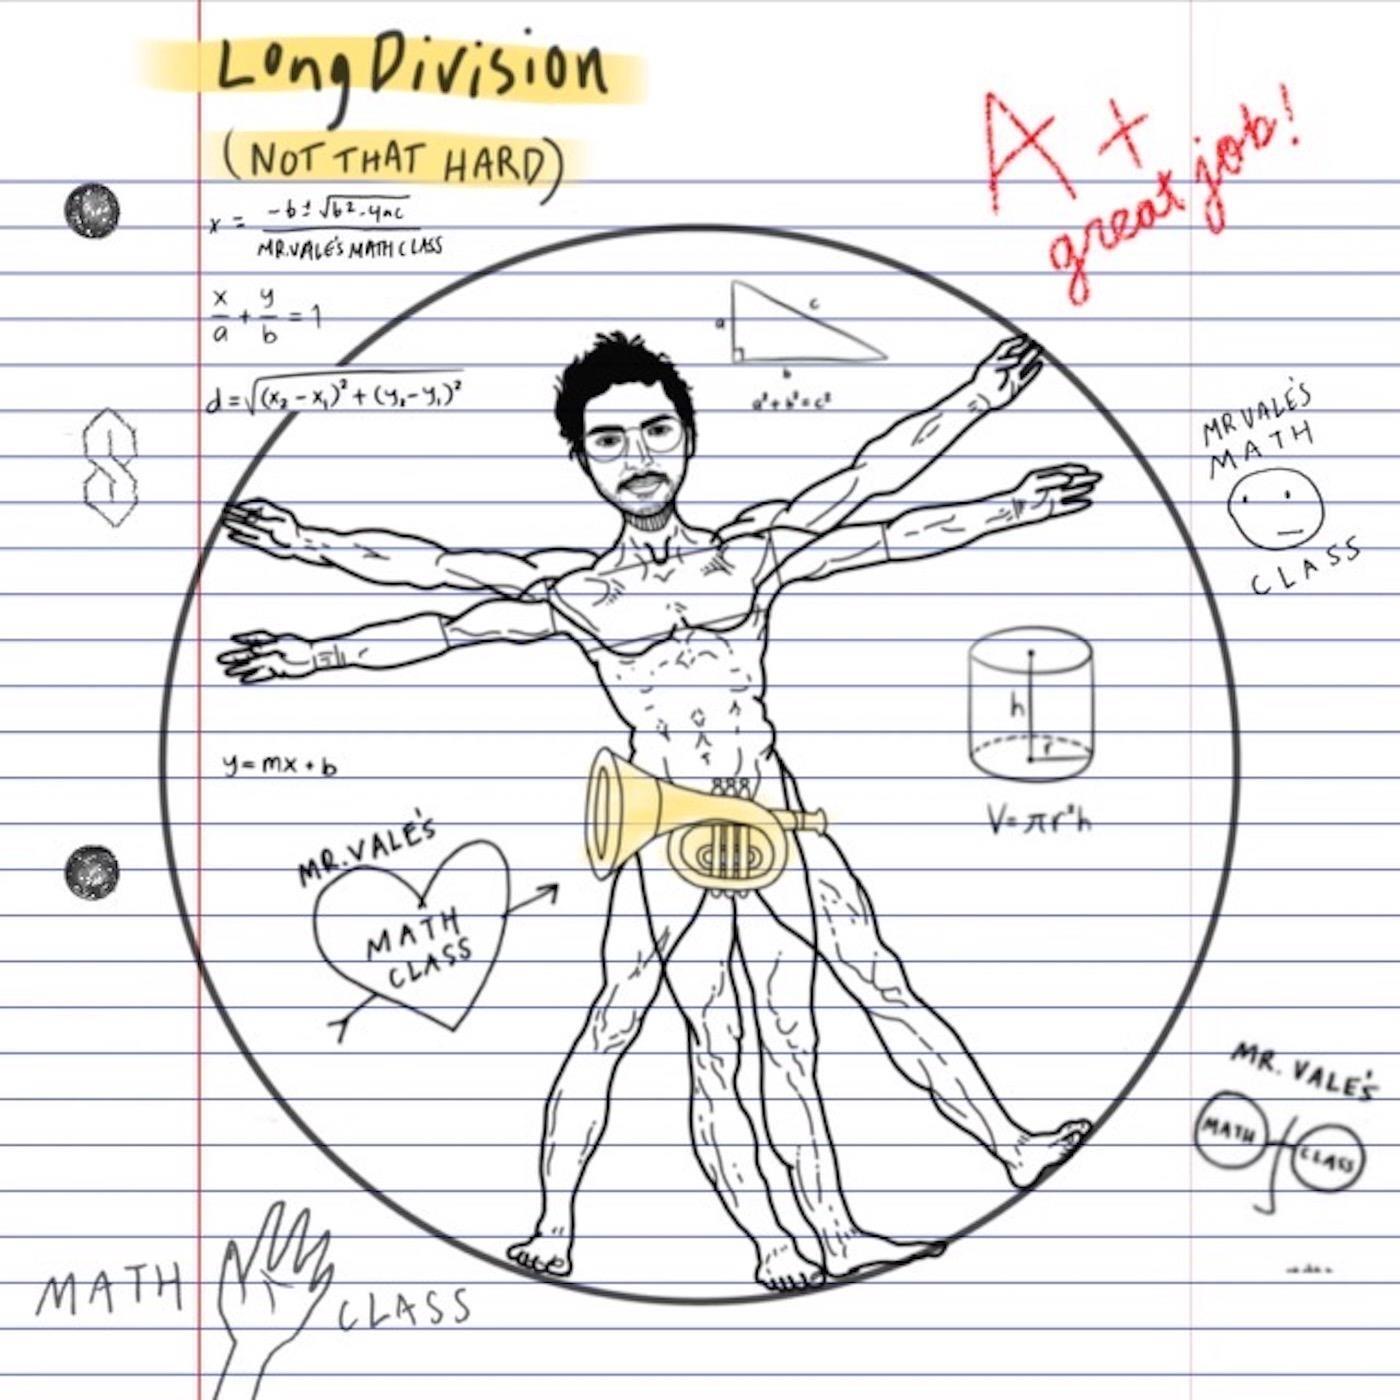 Long Division
(NOT THAT HARD)
A+
great job!
x = -b ± √b²-4ac
MR.VALE'S MATH CLASS
x/a + y/b = 1
d = √(x₂ - x₁)² + (y₂ - y₁)²
a
c
b
a² + b² = c²
MR VALE'S
MATH
CLASS
h
r
V = πr²h
y = mx + b
MR. VALE'S
MATH
CLASS
MR. VALE'S
MATH
CLASS
MATH CLASS